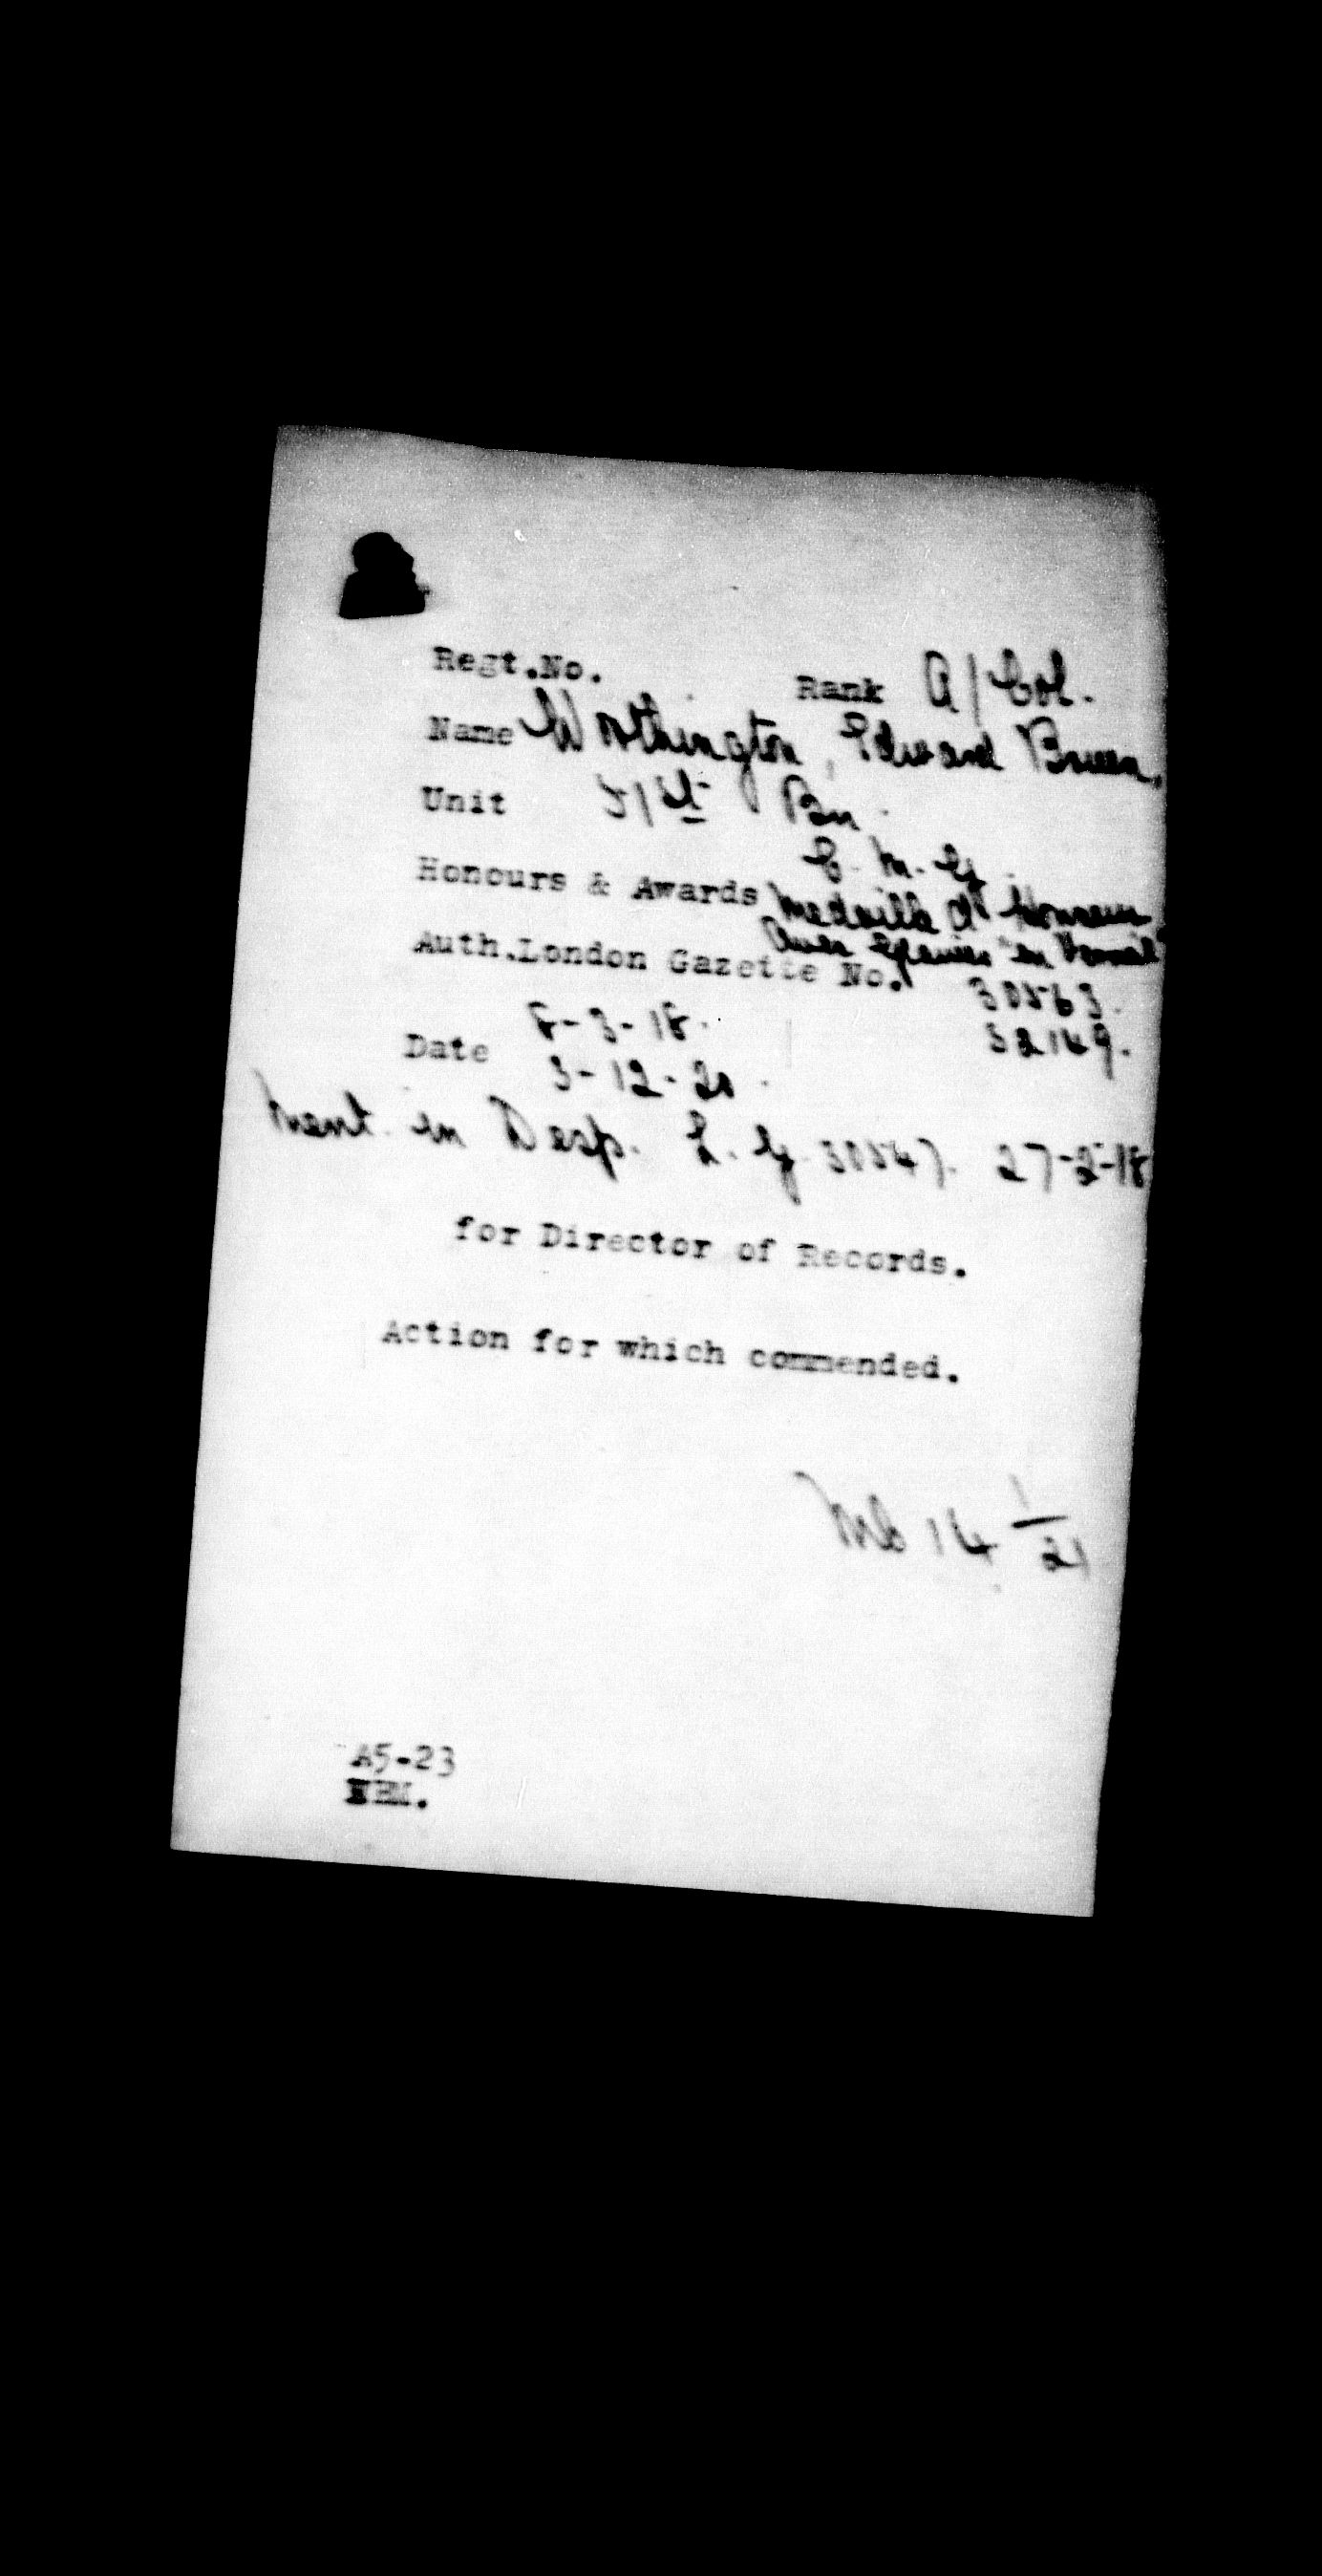 Regt.No. Rank A/Col.
Name Worthington, Edward Bruen,
Unit 51st Bn.
C. M. G.
Honours & Awards Medaille d' Honneur
Avec Glaives "en Vermeil"
Auth.London Gazette No. 30563.
8-3-18. 32149.
Date 3-12-20.
Ment. in Desp. L. G. 30547. 27-2-18
for Director of Records.
Action for which commended.
14 1/21
A5-23